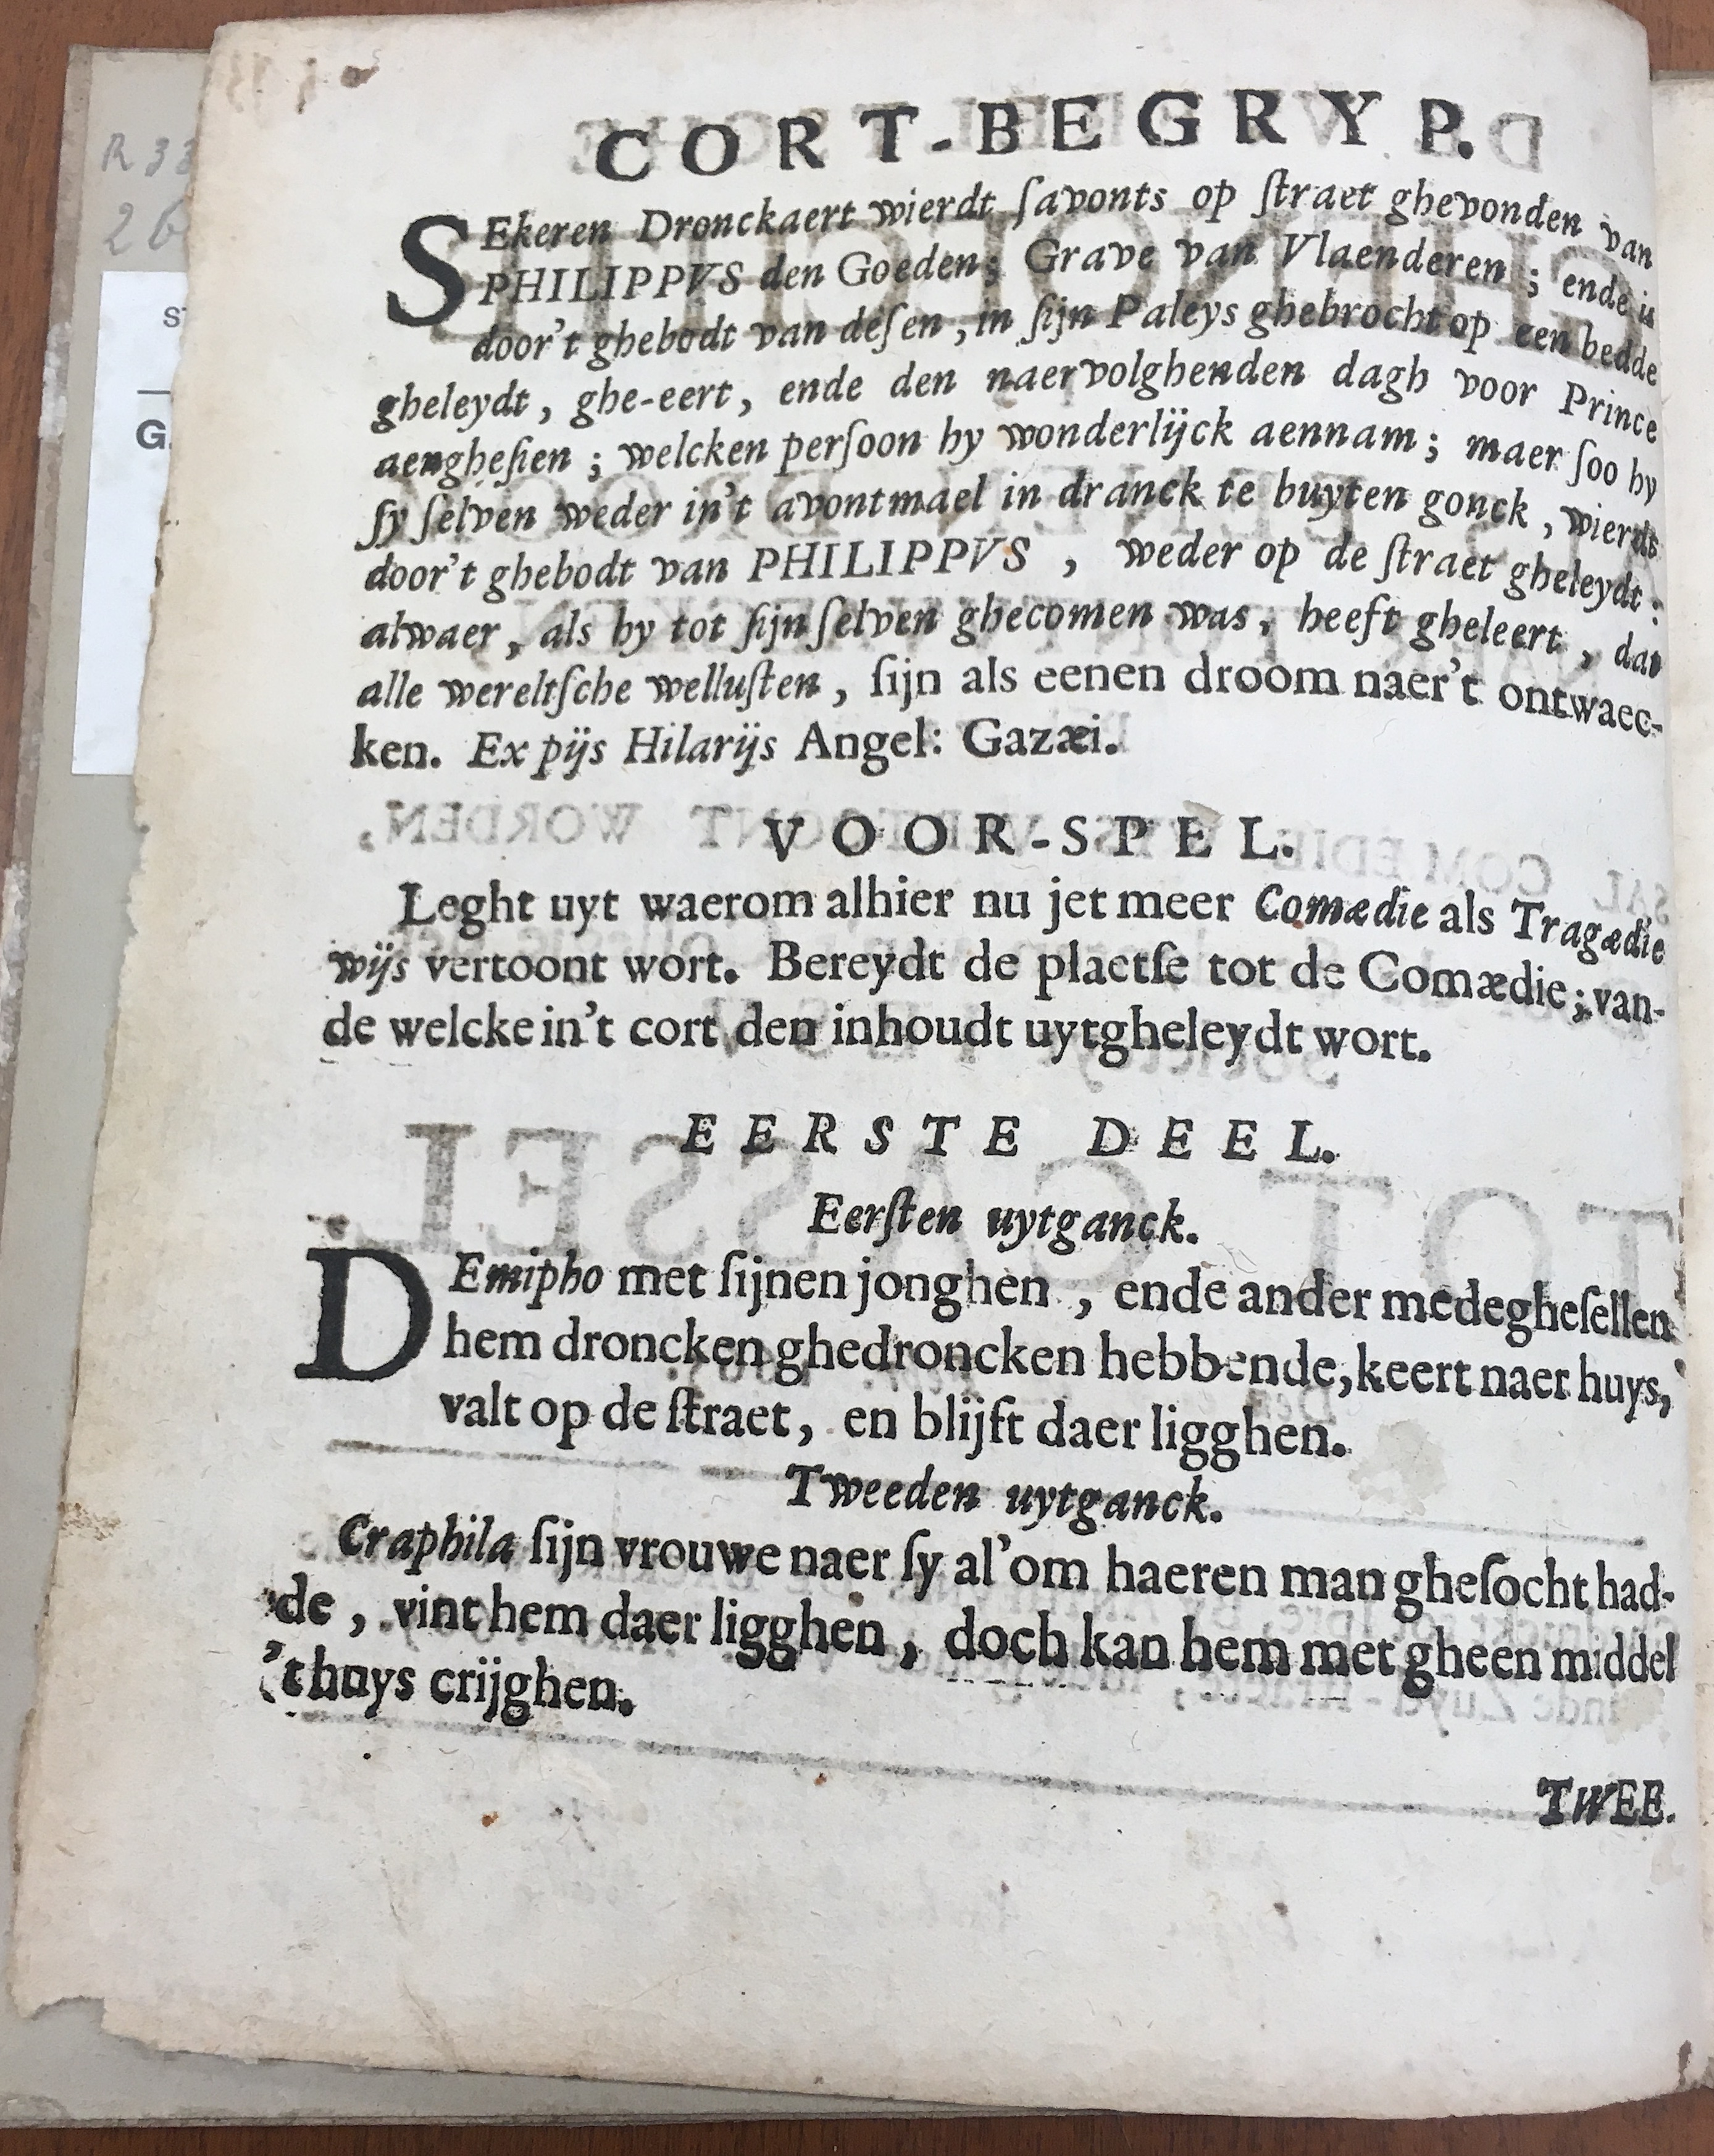 CORT-BEGRYP.
SEkeren Dronckaert wierdt ſavonts op ſtraet ghevonden van
PHILIPPVS den Goeden; Grave van Vlaenderen; ende is
door't ghebodt van deſen, in ſijn Paleys ghebrocht op een bedde
gheleydt, ghe-eert, ende den naervolghenden dagh voor Prince
aengheſien; welcken perſoon hy wonderlijck aennam; maer ſoo hy
ſy ſelven weder in't avontmael in dranck te buyten gonck, wierdt
door't ghebodt van PHILIPPVS, weder op de ſtraet gheleydt:
alwaer, als hy tot ſijn ſelven ghecomen was, heeft gheleert, dat
alle wereltſche welluſten, ſijn als eenen droom naer't ontwaec-
ken. Ex pijs Hilarijs Angel: Gazæi.
VOOR-SPEL.
Leght uyt waerom alhier nu jet meer Comædie als Tragædie
wijs vertoont wort. Bereydt de plaetſe tot de Comædie; van-
de welcke in't cort den inhoudt uytgheleydt wort.
EERSTE DEEL.
Eerſten uytganck.
DEmipho met ſijnen jonghen, ende ander medegheſellen
hem droncken ghedroncken hebbende, keert naer huys,
valt op de ſtraet, en blijft daer ligghen.
Tweeden uytganck.
Craphila ſijn vrouwe naer ſy al'om haeren man gheſocht had-
de, vint hem daer ligghen, doch kan hem met gheen middel
't huys crijghen.
TWEE.
R 33
26
G